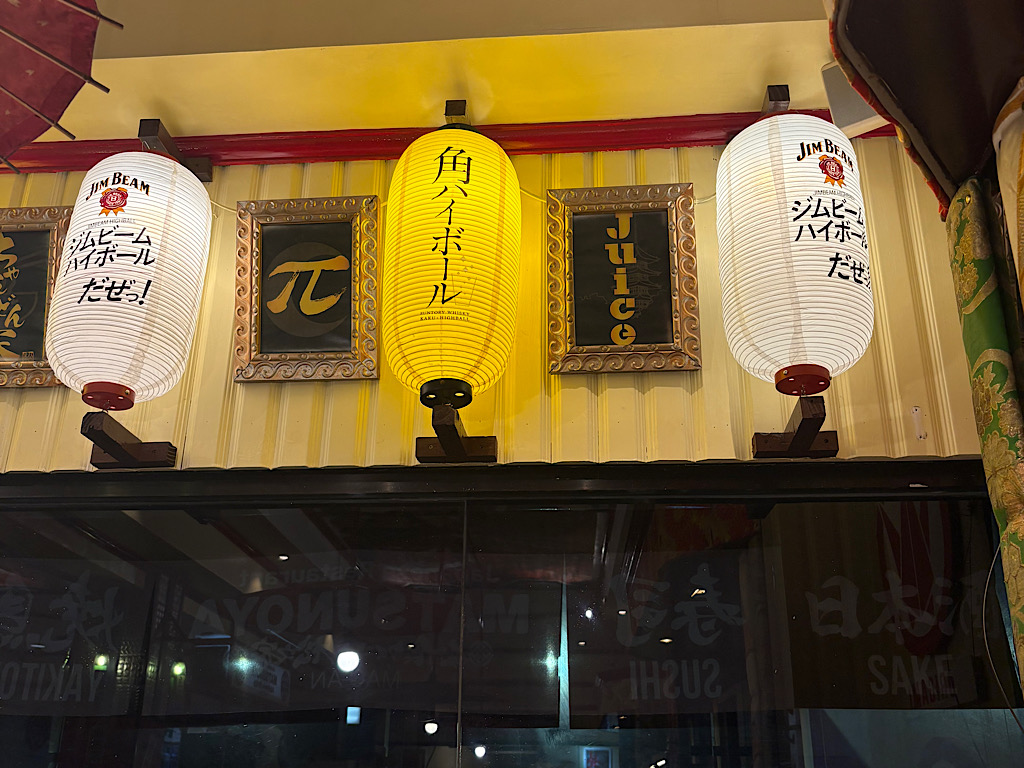 JIM BEAM
JIM BEAM HIGHBALL
ジムビーム
ハイボール
だぜっ!
π
角ハイボール
SUNTORY WHISKY
KAKU-HIGHBALL
Juice
JIM BEAM
JIM BEAM HIGHBALL
ジムビーム
ハイボール
だぜっ
Restaurant
MATSUNOYA
寿司
SUSHI
日本酒
SAKE